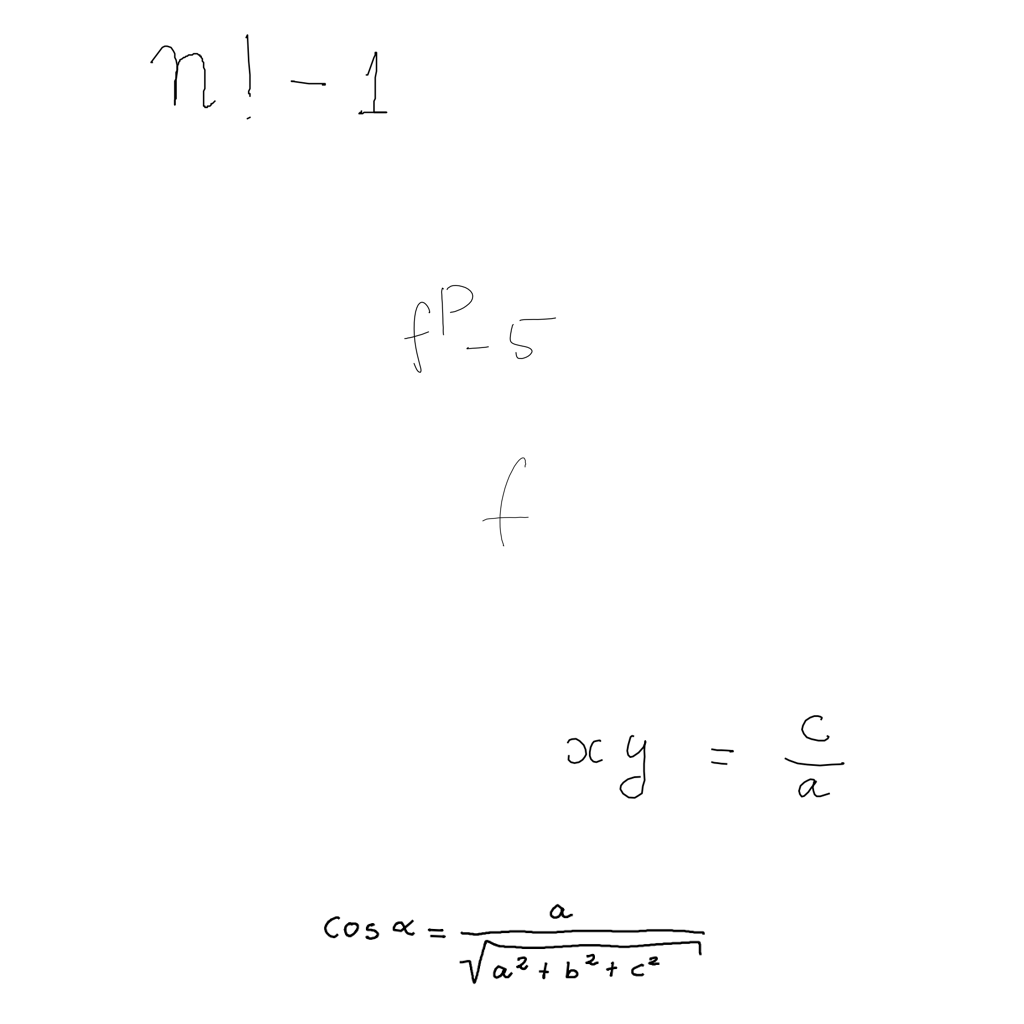 n! - 1
f^p - 5
f
xy = \frac{c}{a}
cos α = \frac{a}{\sqrt{a^2 + b^2 + c^2}}